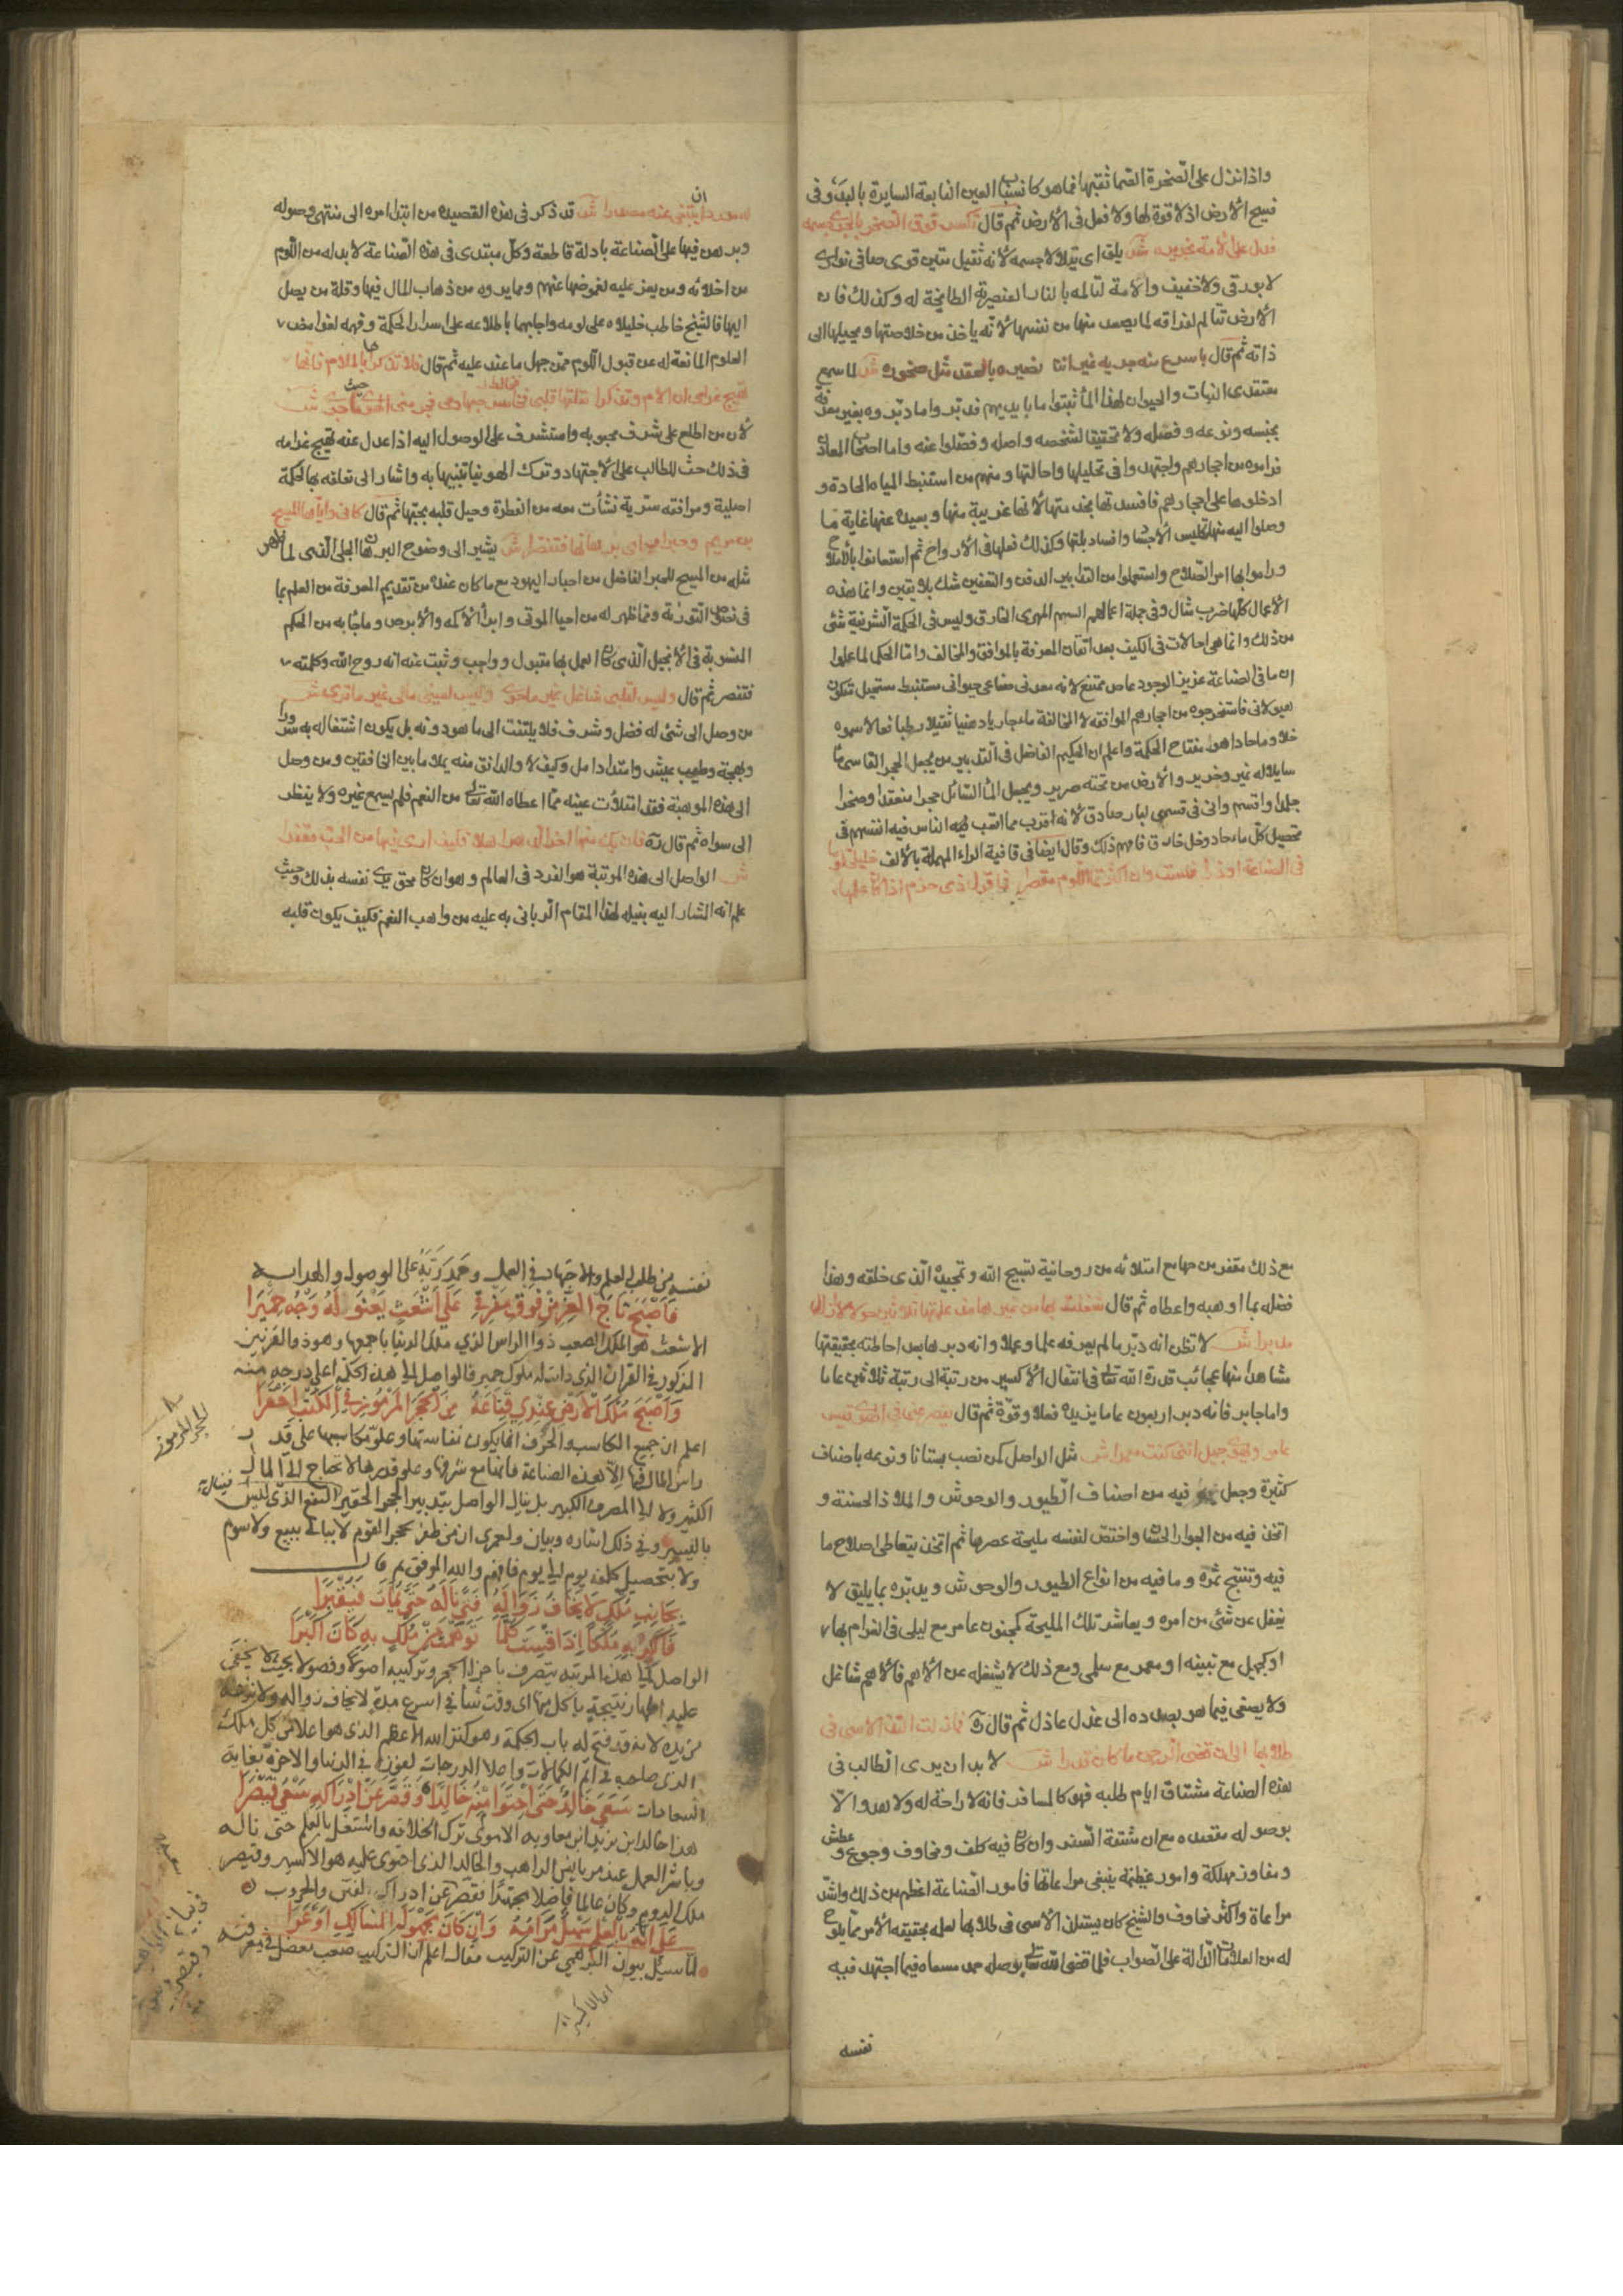 واذا نزل على الصخرة الصما ثقبها فما هو كانسياب العين النابعة السايرة بالبدؤ وفى
فسيح الأرض اذ لا قوة لها ولا فعل فى الأرض ثم قال فوق الصخر جسمه
فدل على شر يلقى اى يثلا لا جسمه لأنه ثقيل متين قوى صافى نورانى
لا بورقى ولا خفيف والأمة لتالمه بالنار العنصرية الطابخة له وكذلك فان
الأرض تتالم لفراقه لما يصعد منها من نفسها لأنه ياخذ من خلاصتها ويحيلها الى
ذاته ثم قال باسرع منه جريه غير اننا نصيره بالعقد مثل صخوره شر لما سمع
معتقدى النبات والحيوان لهذا الما ثبتوا ما بايديهم قد دبروا ما دبروه بغير معرفة
بجنسه ونوعه وفصله ولا تحقيقا لشخصه واصله وفصلوا عنه واما اصحاب المعادن
فراموه من احجارهم واجتهدوا فى تحليلها واحالتها ومنهم من استنبط المياه الحادة و
ادخلوها على احجارهم فافسدتها بحدتها لأنها غريبة منها وبعيدة عنها غاية ما
وصلوا اليه منها تكليس الأجساد وافساد بلتها وكذلك فعلها فى الأرواح ثم استعانوا بالأملاح
وراموا بها امر الصلاح واستعملوا من التدابير الدفن والتعفين شك بلا يقين وانما هذه
الأعمال كلها ضرب مثال وفى جملة اعمالهم السهم المهرى الخارق وليس فى الحكمة الشرفية شئ
من ذلك وانما هى احالات فى الكيف بعد اتقان المعرفة بالموافق والمخالف واما الحكما لما علموا
ان ما فى الصناعة عزيز الوجود عاص ممتنع لأنه معدنى صناعى حيوانى مستنبط مستحيل متكون
هيولانى فاستخرجوه من احجارهم الموافقة لا المخالفة ماء جاريا دهنيا ثقيلا رطبا فعالا سموه
خلا وماء حادا هو مفتاح الحكمة واعلم ان الحكيم الفاضل فى التدبير من يجعل الحجر القاسى ماء
سايلا له خير وخرير والأرض من تحته صرير ويجعل الماء السائل حجرا منعقدا وصخرا
جلدا واقسم وانى فى قسمى لبار صادق لأنه اقرب مما اتعب فيه الناس فيه انفسهم فى
تحصيل كل ماء حاد وخل حاذق فافهم ذلك وقال ايضا فى قافية الراء المهملة بالألف خليلى لوما
فى الصناعة او ذرا فلست وان اكثرتما اللوم مقصرا فما قول ذى حزم اذا كان عالما
ان ينثنى عنه مصدرا شر قد ذكر فى هذه القصيدة من ابتدا امره الى منتهى وصوله
وبرهن فيها على الصناعة بادلة قاطعة وكل مبتدى فى هذه الصناعة لا بد له من اللوم
من اخلائه ومن يعز عليه لغموضها عنهم وما يرون من ذهاب المال فيها وقلة من يصل
اليها فالشيخ خاطب خليلاه على لومه واجابهما باطلاعه على اسرار الحكمة وفهمه لغوامض
العلوم المانعة له عن قبول اللوم ممن جهل ما عنده عليه ثم قال فلا تذكراها بالملام فانها
تهيج غرامى ان الام وتذكرا
لأن من اطلع على شرف محبوبه واستشرف على الوصول اليه اذا عدل عنه تهيج غرامه
فى ذلك حث للطالب على الأجتهاد وترك الهوينا تنبيها به واشار الى تعلقه بها لحكمة
اصلية ومرافقة سرية نشأت معه من الفطرة وحيل قلبه بحبها ثم قال كانى واياها المسيح
بن مريم وحبرا راى برهانها فتنصرا شر يشير الى وضوح البرهان الجلى الذى لما ظهر
مثله من المسيح للحبر الفاضل من احبار اليهود مع ما كان عنده من تقديم المعرفة من العلم بما
فى نص التورية وما ظهر له من احيا الموتى وابرأ الأكمه والأبرص وما جا به من الحكم
المنسوبة فى الأنجيل الذى كان العمل بها مقبول وواجب وثبت عنه انه روح الله وكلمته
فتنصر ثم قال وليس لقلبى شاغل غير ما حوى وليس لعينى مانى غير ما ترى شر
من وصل الى شئ له فضل وشرف فلا يلتفت الى ما هو دونه بل يكون اشتغاله به سرورا
وبهجة وطيب عيش وامتداد امل وكيف لا والدانق منه يملا ما بين الخافقين ومن وصل
الى هذه الموهبة فقد امتلأت عينه مما اعطاه الله تعالى من النعم فلم يسمع غيره ولا ينظر
الى سواه ثم قال ره فان يك منها آهلا فكيف ارى فيها من الحب مقفرا
شر الواصل الى هذه المرتبة هو الفرد فى العالم وهو ان كان محق يرى نفسه بذلك وحيث
علم انه المشار اليه بنيله لهذا المقام الربانى به عليه من واهب النعم فكيف يكون قلبه
مع ذلك مقفر من حبها مع امتلائه من روحانية تسبيح الله وتمجيده الذى خلقه وهذا
فضله بما اوهبه واعطاه ثم قال شغلت بها من غير علمتها ثلاثين حولا لا ازال
مدبرا شر لا تظن انه دبر ما لم يعرفه علما وعملا وانه دبرها بعد احاطته بحقيقتها
مشاهدا منها عجائب قدرة الله تعالى فى انتقال الأكسير من رتبة الى رتبة ثلاثين عاما
واما جابر فانه دبر اربعون عاما يزيده فعلا وقوة ثم قال يقصر عنها فى الهوى قيس
عامر ويهوى جميل اننى كنت معمرا شر مثل الواصل كمن نصب بستانا ونوعه باصناف
كثيرة وجعل فيه من اصناف الطيور والوحوش والملاذ الحسنة و
اتخذ فيه من الجوار الحسان واختص لنفسه مليحة عصرها ثم اتخذ يتعاطى اصلاح ما
فيه وتنتج ثمرة وما فيه من انواع الطيور والوحوش ويدبره بما يليق لا
يغفل عن شئ من امره ويعاشر تلك المليحة كمجنون عامر مع ليلى فى الغرام بها
او كجميل مع بثينه او معمر مع سلمى ومع ذلك لا يشغله عن الأهم فالأهم شاغل
ولا يصغى فيما هو بصدده الى عذل عاذل ثم قال ره فما زلت الف الأسى فى
طلابها الى ان قضى الرحمن ما كان قدرا شر لا بد ان يدرى الطالب فى
هذه الصناعة مشتاق ايام طلبه فهو كالمسافر فانه لا راحة له ولا هدو الا
بوصوله مقصده مع ان مشقة السفر وان كان فيه كلف ومخاوف وجوع وعطش
ومفاوز مهلكة وامور عظيمة ينبغى مراعاتها فامور الصناعة اعظم من ذلك واشد
مراعاة واكثر مخاوف والشيخ كان يستلذ الأسى فى طلابها لعلمه بحقيقة الأمر مما يلوح
له من العلامات الدالة على الصواب فلما قضى الله تعالى بوصله حمد مسعاه فيما اجتهد فيه
نفسه
نفسه من طلب العلم والاجتهاد فى العمل وحمد ربه على الوصول والهداية
فاصبح تاج العز من فوق مفرقى على اشعث يعنو له وجه حميرا
الاشعث هو الملك الصعب ذو الراس الذى ملك الدنيا باجمعها وهو ذو القرنين
المذكور فى القران الذى دانت له ملوك حمير فالواصل الى هذه الحكمة اعلى درجة منه
واصبح ملك الارض عندى قناعة من الحجر المرموز فى الكتب احقرا
اعلم ان جميع المكاسب والحرف انما يكون نفاستها وعلو مكاسبها على قدر
راس المال فيها الا هذه الصناعة فانها مع شرفها وعلو قدرها لا تحتاج الى المال
الكثير ولا الى المصرف الكبير بل ينال الواصل بتدبير الحجر الحقير النفع الذى ليس
باليسير وفى ذلك اشاره وبيان ولعمرى ان من ظفر بحجر القوم لا يبالى ببيع ولا سوم
ولا بتحصيل كلفة يوم الى يوم فافهم والله الموفق ثم قال
بجانب ملك لا يخاف زواله فتى ناله حتى يمات فيقبرا
فاكرم به ملكا اذا قيست كلما توهمت من ملك به كان اكبرا
الواصل الى هذه المرتبة يتصرف باجزا الحجر وتركيبه اصولا وفصولا بحيث لا يخفى
عليه اظهار نتيجة باكل منها اى وقت شا فى اسرع مدة لا يخاف زواله ولا نزحه
من يده لانه قد فتح له باب الحكمة وهو كنز الله الاعظم الذى هو اعلا من كل ملك
الذى صاحبه فى اتم الكمالات واعلا الدرجات لفوزه فى الدنيا والاخرة بغاية
السعادات سعى خالد حتى احتوا منه خالدا وقصر عن ادراكه سعى قيصرا
هذا خالد ابن يزيد ابن معاويه الاموى ترك الخلافه واشتغل بالعلم حتى ناله
وباشر العمل عند مريانس الراهب والخالد الذى احتوى عليه هو الاكسير وقيصر
ملك الروم وكان عالما فاضلا مجتهدا فقصر عن ادراكه لفتن والحروب
على انه بالعلم سهل مرامه وان كان مجهول المسالك اوعرا
لما سئل بيون البرهمى عن التركيب فقال اعلم ان التركيب صعب يعضل فى معرفته
الحجر المرموز